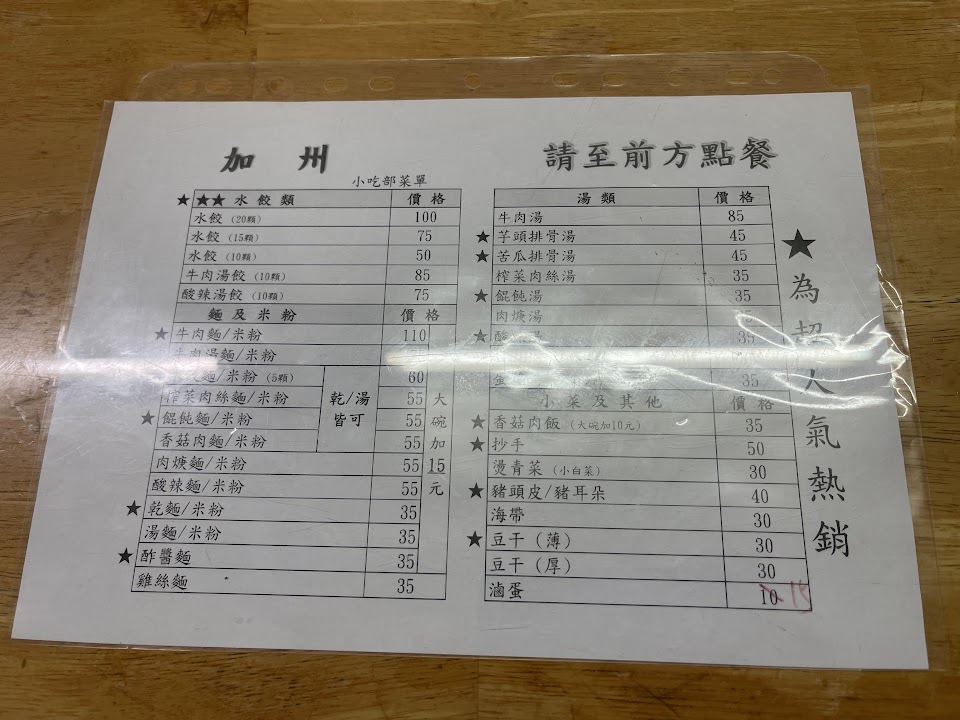 加州
小吃部菜單
★★★ 水餃類 價格
水餃 (20顆) 100
水餃 (15顆) 75
水餃 (10顆) 50
牛肉湯餃 (10顆) 85
酸辣湯餃 (10顆) 75
麵及米粉 價格
★ 牛肉麵/米粉 110
牛肉湯麵/米粉
麵/米粉 (5顆) 60
榨菜肉絲麵/米粉 55
★ 餛飩麵/米粉 55
香菇肉麵/米粉 55
乾/湯
皆可
肉焿麵/米粉 55
酸辣麵/米粉 55
★ 乾麵/米粉 35
湯麵/米粉 35
★ 酢醬麵 35
雞絲麵 35
大碗加15元
請至前方點餐
湯類 價格
牛肉湯 85
★ 芋頭排骨湯 45
★ 苦瓜排骨湯 45
榨菜肉絲湯 35
★ 餛飩湯 35
肉焿湯
★ 酸 湯 35
蛋 35
小菜及其他 價格
★ 香菇肉飯 (大碗加10元) 35
★ 抄手 50
燙青菜 (小白菜) 30
★ 豬頭皮/豬耳朵 40
海帶 30
★ 豆干 (薄) 30
豆干 (厚) 30
滷蛋 10 15
★為超人氣熱銷